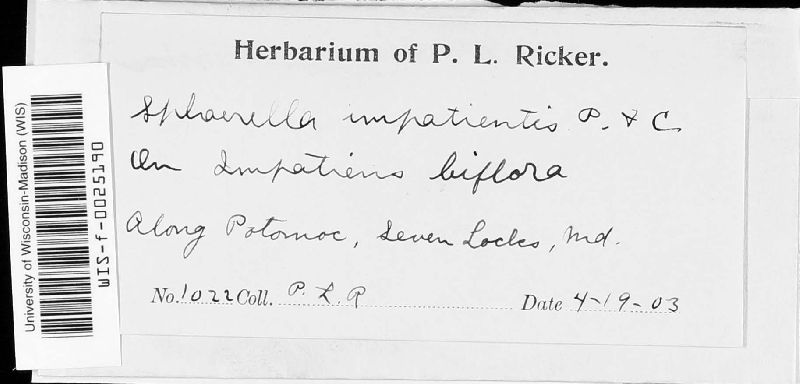 Herbarium of P. L. Ricker.
Sphaerella impatientis P. & C.
On Impatiens biflora
Along Potomac, Seven Locks, Md.
No. 1022 Coll. P. L. R Date 4-19-03
University of Wisconsin-Madison (WIS)
WIS-f-0025190